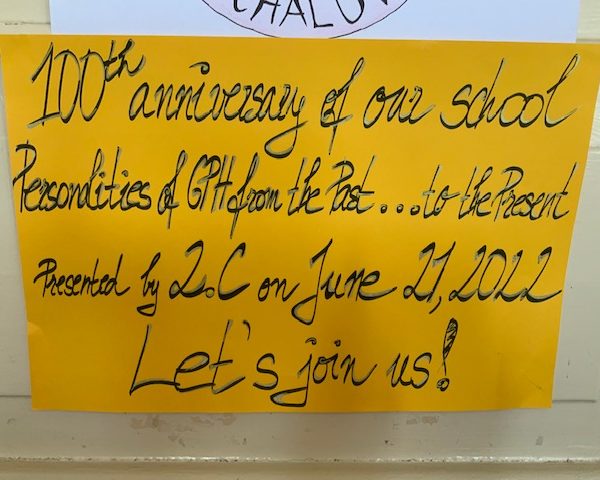 CHALOU
100th anniversary of our school
Personalities of GPH from the Past...to the Present
Presented by 2.C on June 21, 2022
Let's join us!